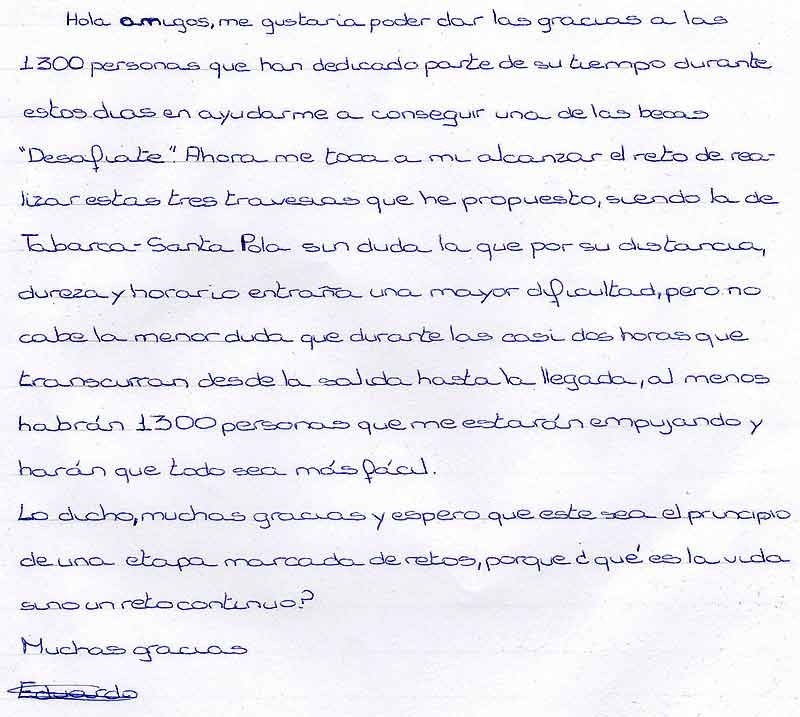 Hola amigos, me gustaria poder dar las gracias a las
1300 personas que han dedicado parte de su tiempo durante
estos dias en ayudarme a conseguir una de las becas
"Desafiate". Ahora me toca a mi alcanzar el reto de rea-
lizar estas tres travesias que he propuesto, siendo la de
Tabarca-Santa Pola sin duda la que por su distancia,
dureza y horario entraña una mayor dificultad, pero no
cabe la menor duda que durante las casi dos horas que
transcurran desde la salida hasta la llegada, al menos
habrán 1300 personas que me estarán empujando y
harán que todo sea más fácil.
Lo dicho, muchas gracias y espero que este sea el principio
de una etapa marcada de retos, porque ¿qué es la vida
sino un reto continuo?
Muchas gracias
Eduardo